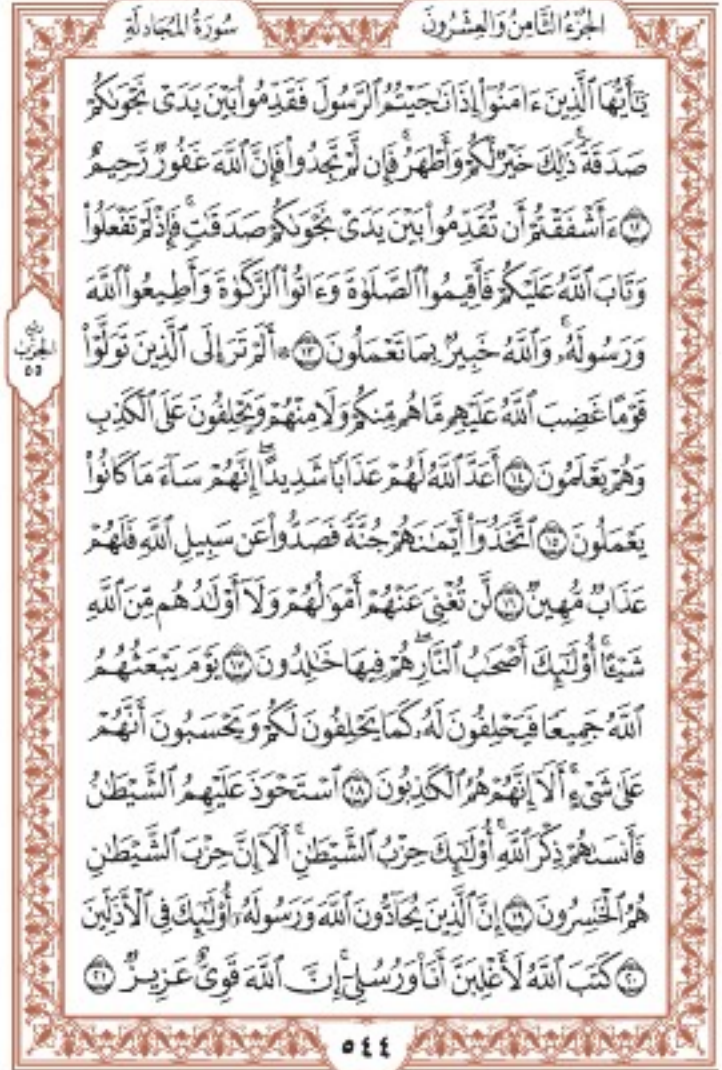 الجُزْءُ الثَّامِنُ وَالعِشْرُونَ
سُورَةُ المُجَادلَةِ
يَٰٓأَيُّهَا ٱلَّذِينَ ءَامَنُوٓاْ إِذَا نَٰجَيْتُمُ ٱلرَّسُولَ فَقَدِّمُواْ بَيْنَ يَدَيْ نَجْوَىٰكُمْ
صَدَقَةً ۚ ذَٰلِكَ خَيْرٌ لَّكُمْ وَأَطْهَرُ ۚ فَإِن لَّمْ تَجِدُواْ فَإِنَّ ٱللَّهَ غَفُورٌ رَّحِيمٌ
١٢ ءَأَشْفَقْتُمْ أَن تُقَدِّمُواْ بَيْنَ يَدَيْ نَجْوَىٰكُمْ صَدَقَٰتٍ ۚ فَإِذْ لَمْ تَفْعَلُواْ
وَتَابَ ٱللَّهُ عَلَيْكُمْ فَأَقِيمُواْ ٱلصَّلَوٰةَ وَءَاتُواْ ٱلزَّكَوٰةَ وَأَطِيعُواْ ٱللَّهَ
وَرَسُولَهُۥ ۚ وَٱللَّهُ خَبِيرٌۢ بِمَا تَعْمَلُونَ ١٣ ۞ أَلَمْ تَرَ إِلَى ٱلَّذِينَ تَوَلَّوْاْ
قَوْمًا غَضِبَ ٱللَّهُ عَلَيْهِم مَّا هُم مِّنكُمْ وَلَا مِنْهُمْ وَيَحْلِفُونَ عَلَى ٱلْكَذِبِ
وَهُمْ يَعْلَمُونَ ١٤ أَعَدَّ ٱللَّهُ لَهُمْ عَذَابًا شَدِيدًا ۖ إِنَّهُمْ سَآءَ مَا كَانُواْ
يَعْمَلُونَ ١٥ ٱتَّخَذُوٓاْ أَيْمَٰنَهُمْ جُنَّةً فَصَدُّواْ عَن سَبِيلِ ٱللَّهِ فَلَهُمْ
عَذَابٌ مُّهِينٌ ١٦ لَّن تُغْنِيَ عَنْهُمْ أَمْوَٰلُهُمْ وَلَآ أَوْلَٰدُهُم مِّنَ ٱللَّهِ
شَيْـًٔا ۚ أُوْلَٰٓئِكَ أَصْحَٰبُ ٱلنَّارِ ۖ هُمْ فِيهَا خَٰلِدُونَ ١٧ يَوْمَ يَبْعَثُهُمُ
ٱللَّهُ جَمِيعًا فَيَحْلِفُونَ لَهُۥ كَمَا يَحْلِفُونَ لَكُمْ وَيَحْسَبُونَ أَنَّهُمْ
عَلَىٰ شَيْءٍ ۚ أَلَآ إِنَّهُمْ هُمُ ٱلْكَٰذِبُونَ ١٨ ٱسْتَحْوَذَ عَلَيْهِمُ ٱلشَّيْطَٰنُ
فَأَنسَىٰهُمْ ذِكْرَ ٱللَّهِ ۚ أُوْلَٰٓئِكَ حِزْبُ ٱلشَّيْطَٰنِ ۚ أَلَآ إِنَّ حِزْبَ ٱلشَّيْطَٰنِ
هُمُ ٱلْخَٰسِرُونَ ١٩ إِنَّ ٱلَّذِينَ يُحَآدُّونَ ٱللَّهَ وَرَسُولَهُۥٓ أُوْلَٰٓئِكَ فِي ٱلْأَذَلِّينَ
٢٠ كَتَبَ ٱللَّهُ لَأَغْلِبَنَّ أَنَا۠ وَرُسُلِيٓ ۚ إِنَّ ٱللَّهَ قَوِيٌّ عَزِيزٌ ٢١
ربع
الحزب
٥٥
٥٤٤